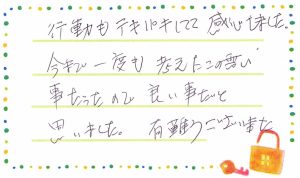 行動もテキパキしてて感心しました。
今まで一度も考えたこの無い
事だったので良い事だと
思いました。有難うございました